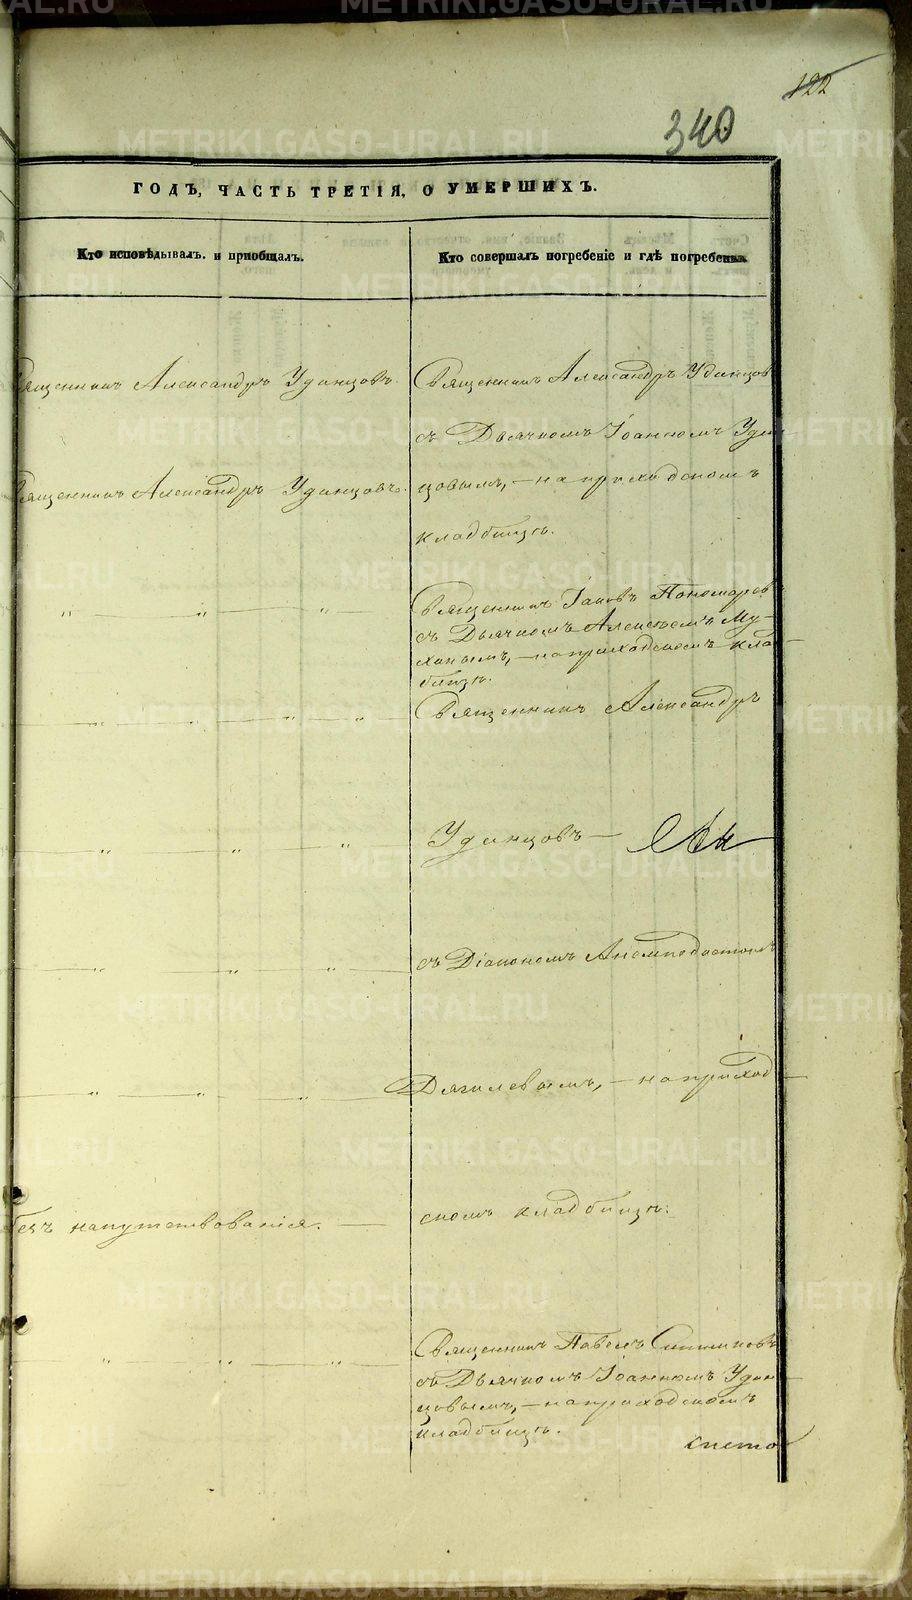 122
340
ГОДЪ, ЧАСТЬ ТРЕТІЯ, О УМЕРШИХЪ.
Кто исповѣдывалъ и пріобщалъ.
Кто совершалъ погребеніе и гдѣ погребены.
Священникъ Александръ Удинцовъ.
Священникъ Александръ Удинцовъ
съ Дьячкомъ Іоанномъ Удин
Священникъ Александръ Удинцовъ.
цовымъ, — на приходскомъ
кладбищѣ.
Священникъ Іаковъ Пономаревъ
съ Дьячкомъ Алексѣемъ Му-
хинымъ, — на приходскомъ клад
бищѣ.
Священникъ Александръ
Удинцовъ —
съ Діакономъ Анемподистомъ
Дягилевымъ, — на приход
безъ напутствованія. —
скомъ кладбищѣ.
Священникъ Павелъ
съ Дьячкомъ Іоанномъ Удин
цовымъ, — на приходскомъ
кладбищѣ.
METRIKI.GASO-URAL.RU